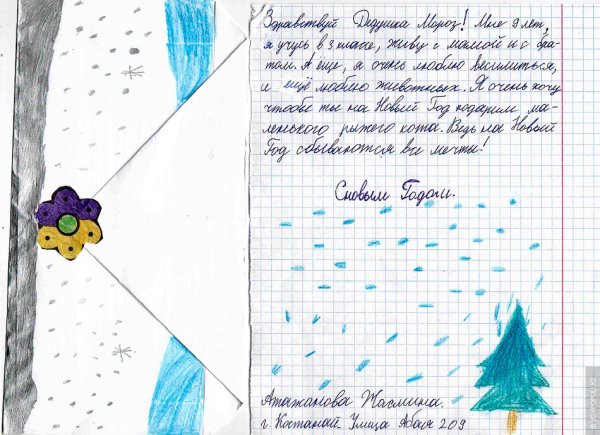 Здравствуй Дедушка Мороз! Мне 9 лет,
я учусь в 3 классе, живу с мамой и с бра-
том. А ещё, я очень люблю веселиться,
и ещё люблю животных. Я очень хочу
чтобы ты на Новый Год подарил ма-
ленького рыжего кота. Ведь на Новый
Год сбываются все мечты!
С новым Годом.
Атажанова Жасмина.
г. Костанай. Улица Абая 209